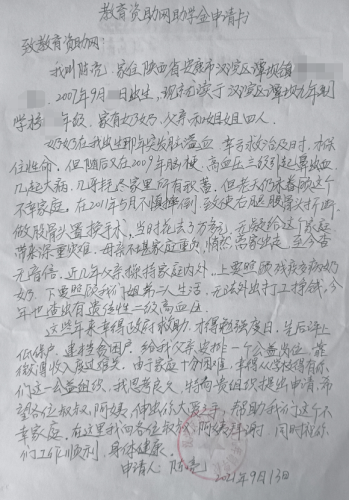 教育资助网助学金申请书
致教育资助网：
我叫陈亮，家住陕西省安康市汉滨区谭坝镇
2007年9月 日出生，现在就读于汉滨区谭坝九年制
学校 年级，家有奶奶、父亲和姐姐四人。
奶奶在我出生那年突发脑溢血，幸亏救治及时，才保
住性命，但随后又在2009年脑梗、高血压三级引起鼻出血
几起大病，几乎耗尽家里所有积蓄，但老天仍未眷顾这个
不幸家庭，在2011年5月不慎摔倒，致使右腿股骨头折断，
做股骨头置换手术，当时花去3万多元，无疑给这个家庭
带来深重灾难，母亲不堪家庭重负，悄然离家出走，至今杳
无音信，近几年父亲维持家庭内外，上要照顾残疾多病奶
奶，下要照顾我们姐弟二人生活，无法外出打工挣钱，今
年也查出有遗传性二级高血压。
这些年来幸得政府救助，才得勉强度日，先后评上
低保户、建档贫困户，给我父亲安排一个公益岗位，靠
微薄收入度过宿关，由于家庭十分困难，幸得从学校得知你
们这一公益组织，我思考良久，特向贵组织提出申请，希
望各位叔叔、阿姨，伸出仁大爱之手，帮助我们这个不
幸家庭，在这里我向各位叔叔、阿姨拜谢，同时祝你
们工作顺利、身体健康。
申请人：陈亮
2021年9月13日